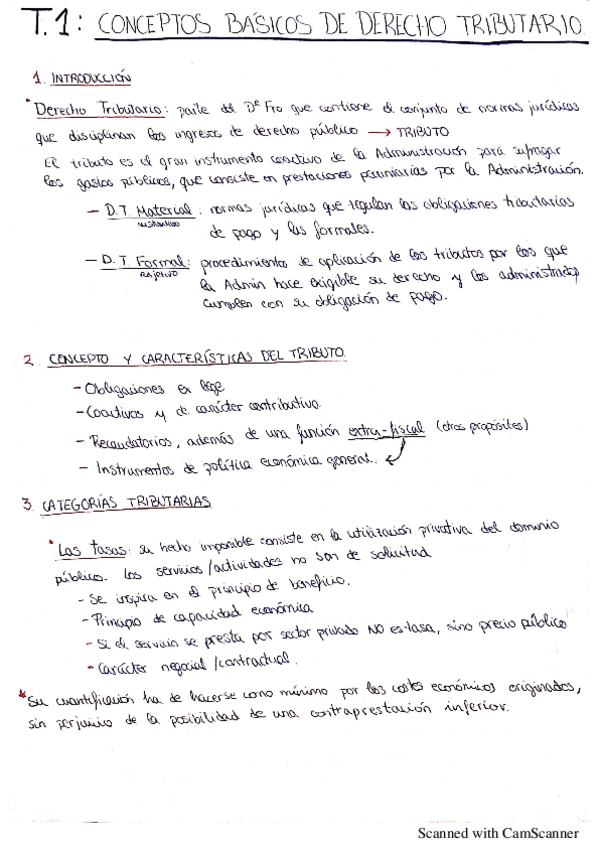 T.1: CONCEPTOS BÁSICOS DE DERECHO TRIBUTARIO.
1. INTRODUCCIÓN
Derecho Tributario: parte del Dº Fro que contiene el conjunto de normas jurídicas
que disciplinan los ingresos de derecho público → TRIBUTO
El tributo es el gran instrumento coactivo de la Administración para sufragar
los gastos públicos, que consiste en prestaciones pecuniarias por la Administración.
- D.T. Material: normas jurídicas que regulan las obligaciones tributarias
sustantivo
de pago y las formales.
- D.T. Formal: procedimientos de aplicación de los tributos por los que
adjetivo
la Admin hace exigible su derecho y los administrados
cumplen con su obligación de pago.
2. CONCEPTO Y CARACTERÍSTICAS DEL TRIBUTO
- Obligaciones ex lege
- Coactivos y de carácter contributivo.
- Recaudatorios, además de una función extra-fiscal (otros propósitos)
- Instrumentos de política económica general.
3. CATEGORÍAS TRIBUTARIAS
* Las tasas: su hecho imponible consiste en la utilización privativa del dominio
público. Los servicios/actividades no son de solicitud
- Se inspira en el principio de beneficio.
- Principio de capacidad económica
- Si el servicio se presta por sector privado NO es tasa, sino precio público
- Carácter negocial/contractual.
* Su cuantificación ha de hacerse como mínimo por los costes económicos originados,
sin perjuicio de la posibilidad de una contraprestación inferior.
Scanned with CamScanner